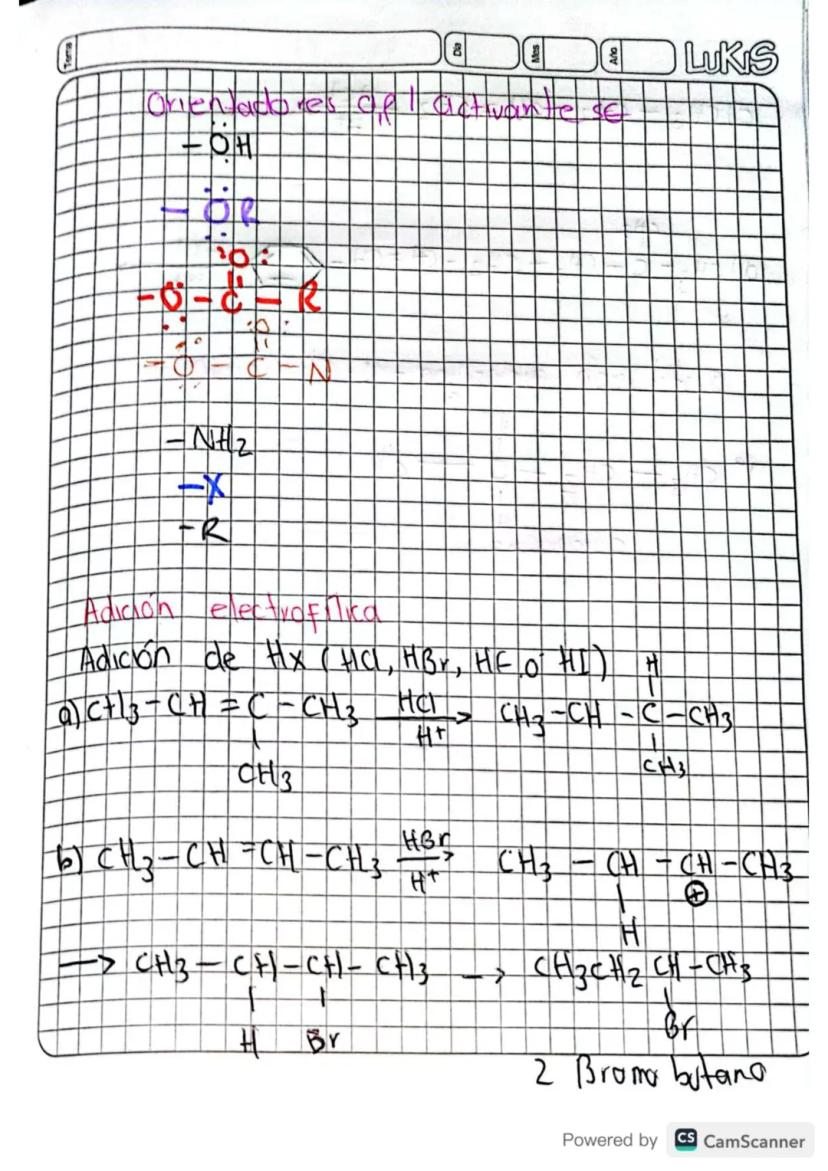 Tema
Dia
Mes
Año
LUKIS
Orientadores o,p | activante SE
- ÖH
- ÖR
O:
- O - C - R
:O:
- O - C - N
- NH2
- X
- R
Adición electrofílica
Adición de HX (HCl, HBr, HF, o HI)
H
a) CH3 - CH = C - CH3 HCl / H+ > CH3 - CH - C - CH3
CH3 CH3
b) CH3 - CH = CH - CH3 HBr / H+ > CH3 - CH - CH - CH3
⊕
H
—> CH3 - CH - CH - CH3 -> CH3CH2 CH - CH3
H Br Br
2 Bromo butano
Powered by CS CamScanner